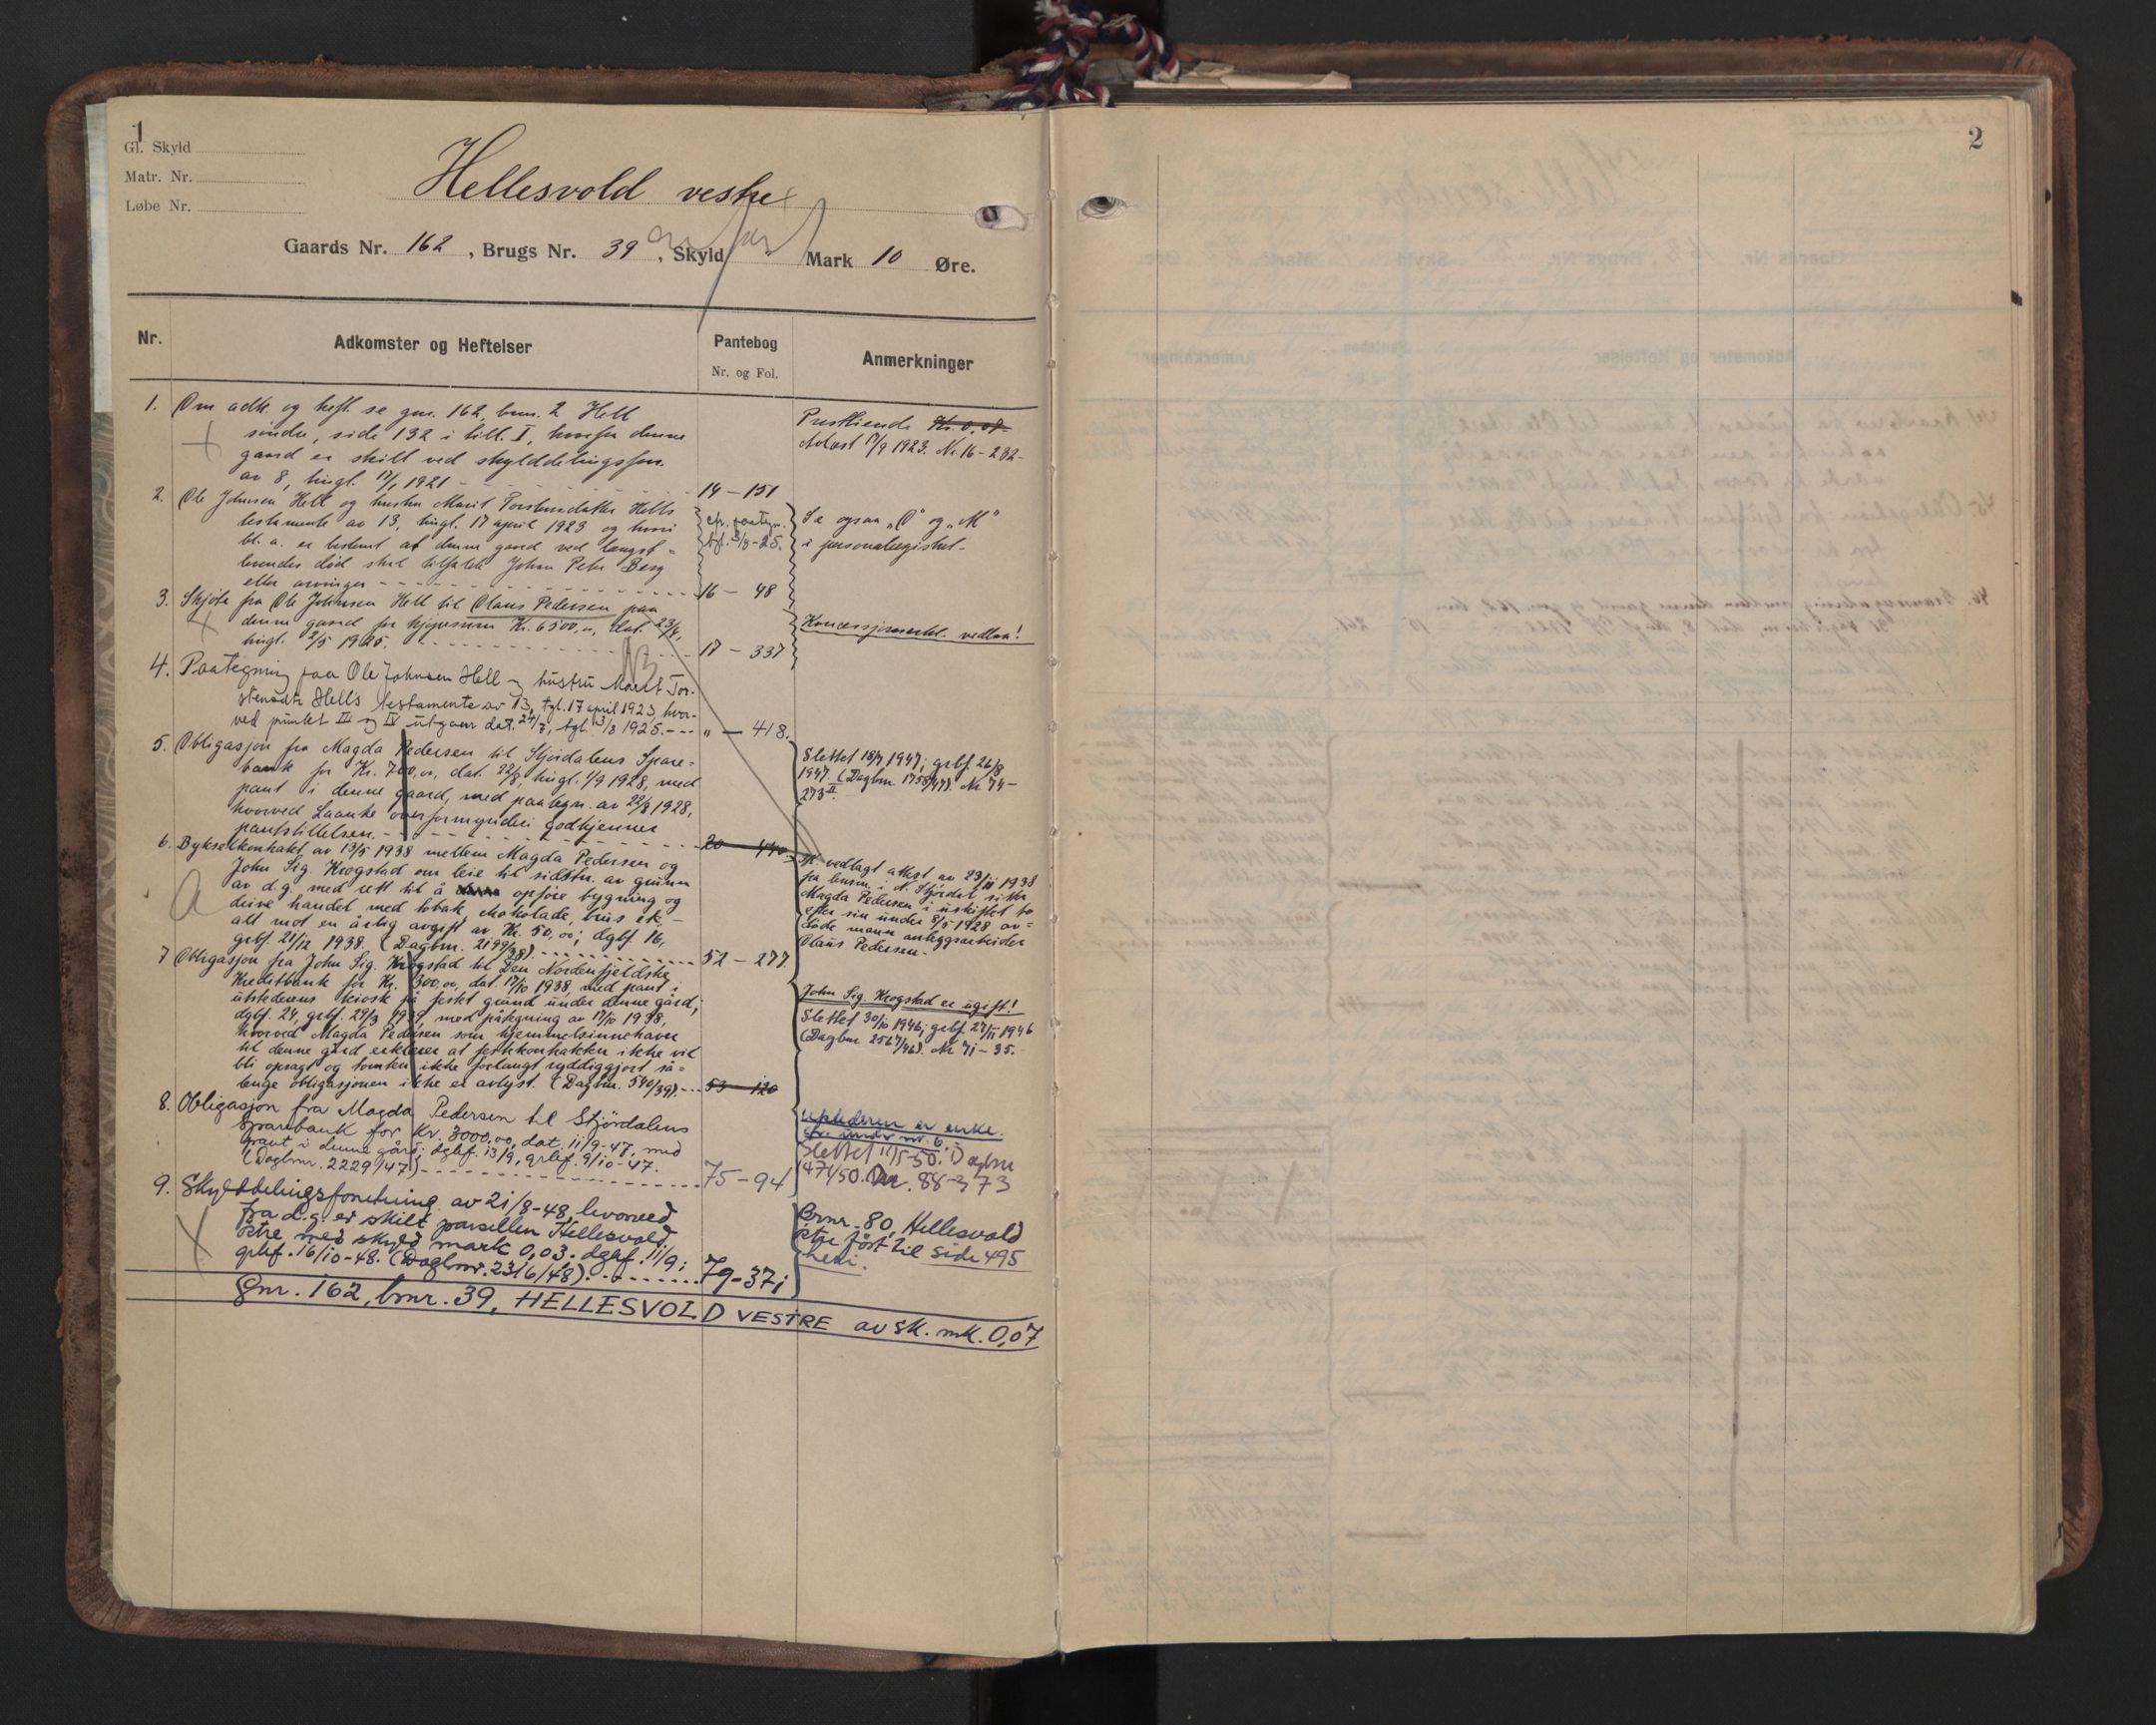 1
Gl. Skyld
Matr. Nr.
Løbe Nr.
Hellesvold vestre
Gaards Nr. 162, Brugs Nr. 39, Skyld Mark 10 Øre.
Nr.
Adkomster og Heftelser
Pantebog
Nr. og Fol.
Anmerkninger
1. Om adk. og heft. se gnr. 162, bnr. 2 Hell
söndre, side 132 i bill. I, hvorfra denne
gaard er skilt ved skylddelingsforr.
av 8, tingl. 17/1 1921 - 14 - 151
Prestliende Kr. 0,08
Avløst 17/9 1923. Nr. 16 - 232 -
2. Ole Johnsen Hell og hustru Marit Torstensdatter Hells
testamente av 13, tingl. 17 april 1923 og hvori
bl. a. er bestemt at denne gaard ved længst-
levendes död skal tilfalde Johan Peter Berg
eller arvinger - 16 - 48
cfr. paategn.
tgl. 3/8-25.
Se ogsaa "O" og "M"
i personalregistret -
3. Skjöte fra Ole Johnsen Hell til Olaus Pedersen paa
denne gaard for kjöpesum Kr. 6500,00, dat. 23/4,
tingl. 2/5 1925. 17 - 337
Koncessjonserkl. vedlaa!
4. Paategning paa Ole Johnsen Hell og hustru Marit Tor-
stensdtr Hells testamente av 13, tgl. 17 april 1923, hvor-
ved punktet III og IV utgaar dat. 24/7, tgl. 3/8 1925. --- " - 418.
5. Obligasjon fra Magda Pedersen til Stjördalens Spare-
bank for Kr. 700,00, dat. 22/8, tingl. 1/9 1928, med
pant i denne gaard, med paategn. av 22/8 1928,
hvorved Laanke overformynderi godkjenner
pantstillelsen. - 20 - 440
Slettet 18/7 1947; grbf. 26/8
1947. (Dagbnr. 1758/47). Nr. 74 -
273 II.
6. Bykselkontrakt av 13/5 1938 mellem Magda Pedersen og
John Sig. Krogstad om leie til sidstn. av grunn
av d.g. med rett til å opföre bygning og
drive handel med tobak, chokolade, brus etc. -
alt mot en årlig avgift av Kr. 50,00; dgbf 16,
grbf. 21/12 1938. (Dagbnr. 2199/38). 52 - 277
If. vedlagt attest av 23/11 1938
fra lensm. i N. Stjördal sitter
Magda Pedersen i uskiftet bo
efter sin under 8/5 1928 av-
döde mann anleggsarbeider
Olaus Pedersen. -
7 Obligasjon fra John Sig. Krogstad til Den Nordenfjeldske
Kreditbank for Kr. 300,00, dat. 17/10 1938, med pant i
utstederens kiosk på festet grund under denne gård;
dgbf. 24, grbf. 29/3 1939, med påtegning av 17/10 1938,
hvorved Magda Pedersen som hjemmelsinnehaver
til denne gård erklærer at festekontrakten ikke vil
bli opsagt og tomten ikke forlangt ryddiggjort så-
lenge obligasjonen ikke er avlyst. (Dagbnr. 540/39). - 53 - 120
John Sig. Krogstad er ugift!
Slettet 30/10 1946; grbf. 27/11 1946
(Dagbnr 2567/46). Nr 71 - 35. -
8. Obligasjon fra Magda Pedersen til Stjördalens
Sparebank for kr. 3000,00, dat. 11/9-47, med
pant i denne gård; dgbf. 13/9, grbf. 9/10-47.
(Dagbnr. 2229/47) - 75 - 94
Utstederen er enke.
Cfr. under nr. 6.
Slettet 11/5-50. Dagbnr
1474/50. Nr. 88-373
9. Skylddelingsforretning av 21/8-48, hvorved
fra d.g. er skilt parsellen Hellesvold
östre med skyld mark 0,03. dgbf. 11/9;
grbf. 16/10-48. (Dagbnr. 2316/48). 79-371
Bnr. 80, Hellesvold
östre fört til side 495
heri.
Gnr. 162, bnr. 39, HELLESVOLD VESTRE av sk. mk. 0,07
2